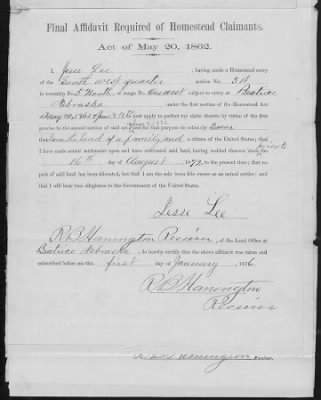 Final Affidavit Required of Homestead Claimants.
Act of May 20, 1862.
I, Jesse Lee, having made a Homestead entry
of the South west quarter section No. 34
in township No. 5 North of range No. One west subject to entry at Beatrice
Nebraska under the first section of the Homestead Act
of May 20, 1862 & June 8 1872 now apply to perfect my claim thereto by virtue of the first
section of said Act; and for that purpose do solemnly Swear
that I am the head of a family and a citizen of the United States; that I
have made actual settlement upon and have cultivated said land, having resided thereon since prior to
16th day of August, 1872 to the present time; that no
part of said land has been alienated, but that I am the sole bona fide owner as an actual settler; and
that I will bear true allegiance to the Government of the United States.
Jesse Lee
I, R B Harrington Receiver, of the Land Office at
Beatrice Nebraska, do hereby certify that the above affidavit was taken and
subscribed before me this first day of January 1876
R B Harrington
Receiver
R B Harrington Receiver.